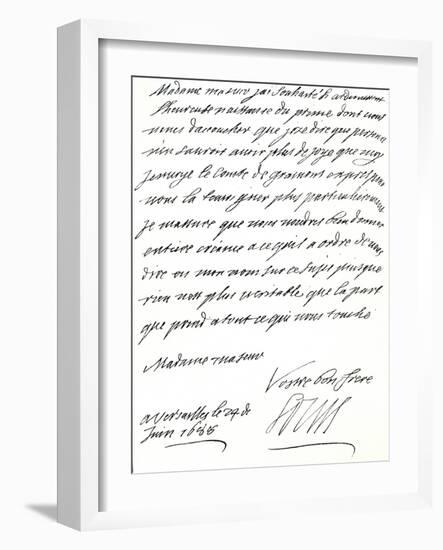 Madame masœur jai souhaité si ardemment
lheureuse naissance du prince dont vous
venes daccoucher que jose dire que personne
nen sauroit avoir plus de joye que moy
jenvoye le comte de gramont exprès pour
vous la tesmoigner plus particulierement
je massure que vous voudres bien donner
entiere creance a ce quil a ordre de vous
dire en mon nom sur ce sujet puisque
rien nest plus veritable que la part
que prend a tout ce qui vous touche
Madame masœur
Vostre bon frere
Louis
a Versailles le 24 de
Juin 1688